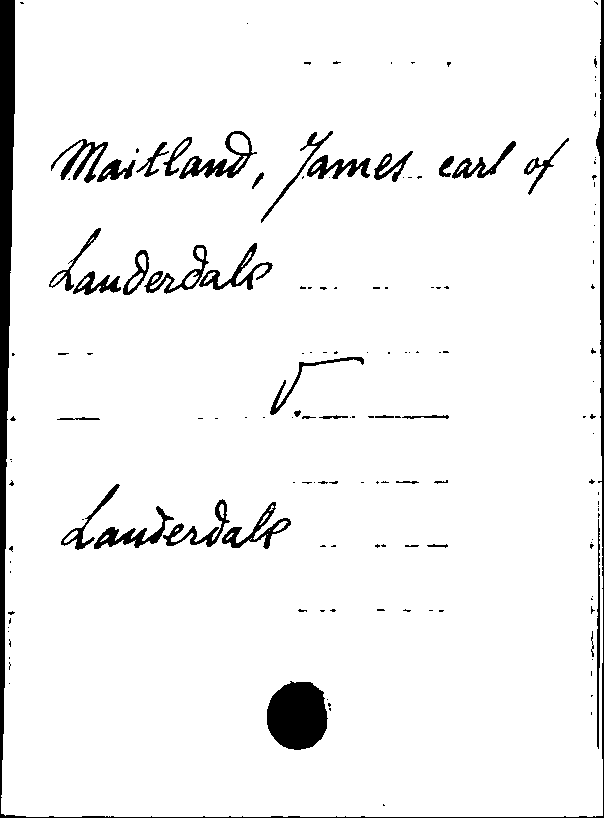 Maitland, James earl of
Lauderdale
V.
Lauderdale